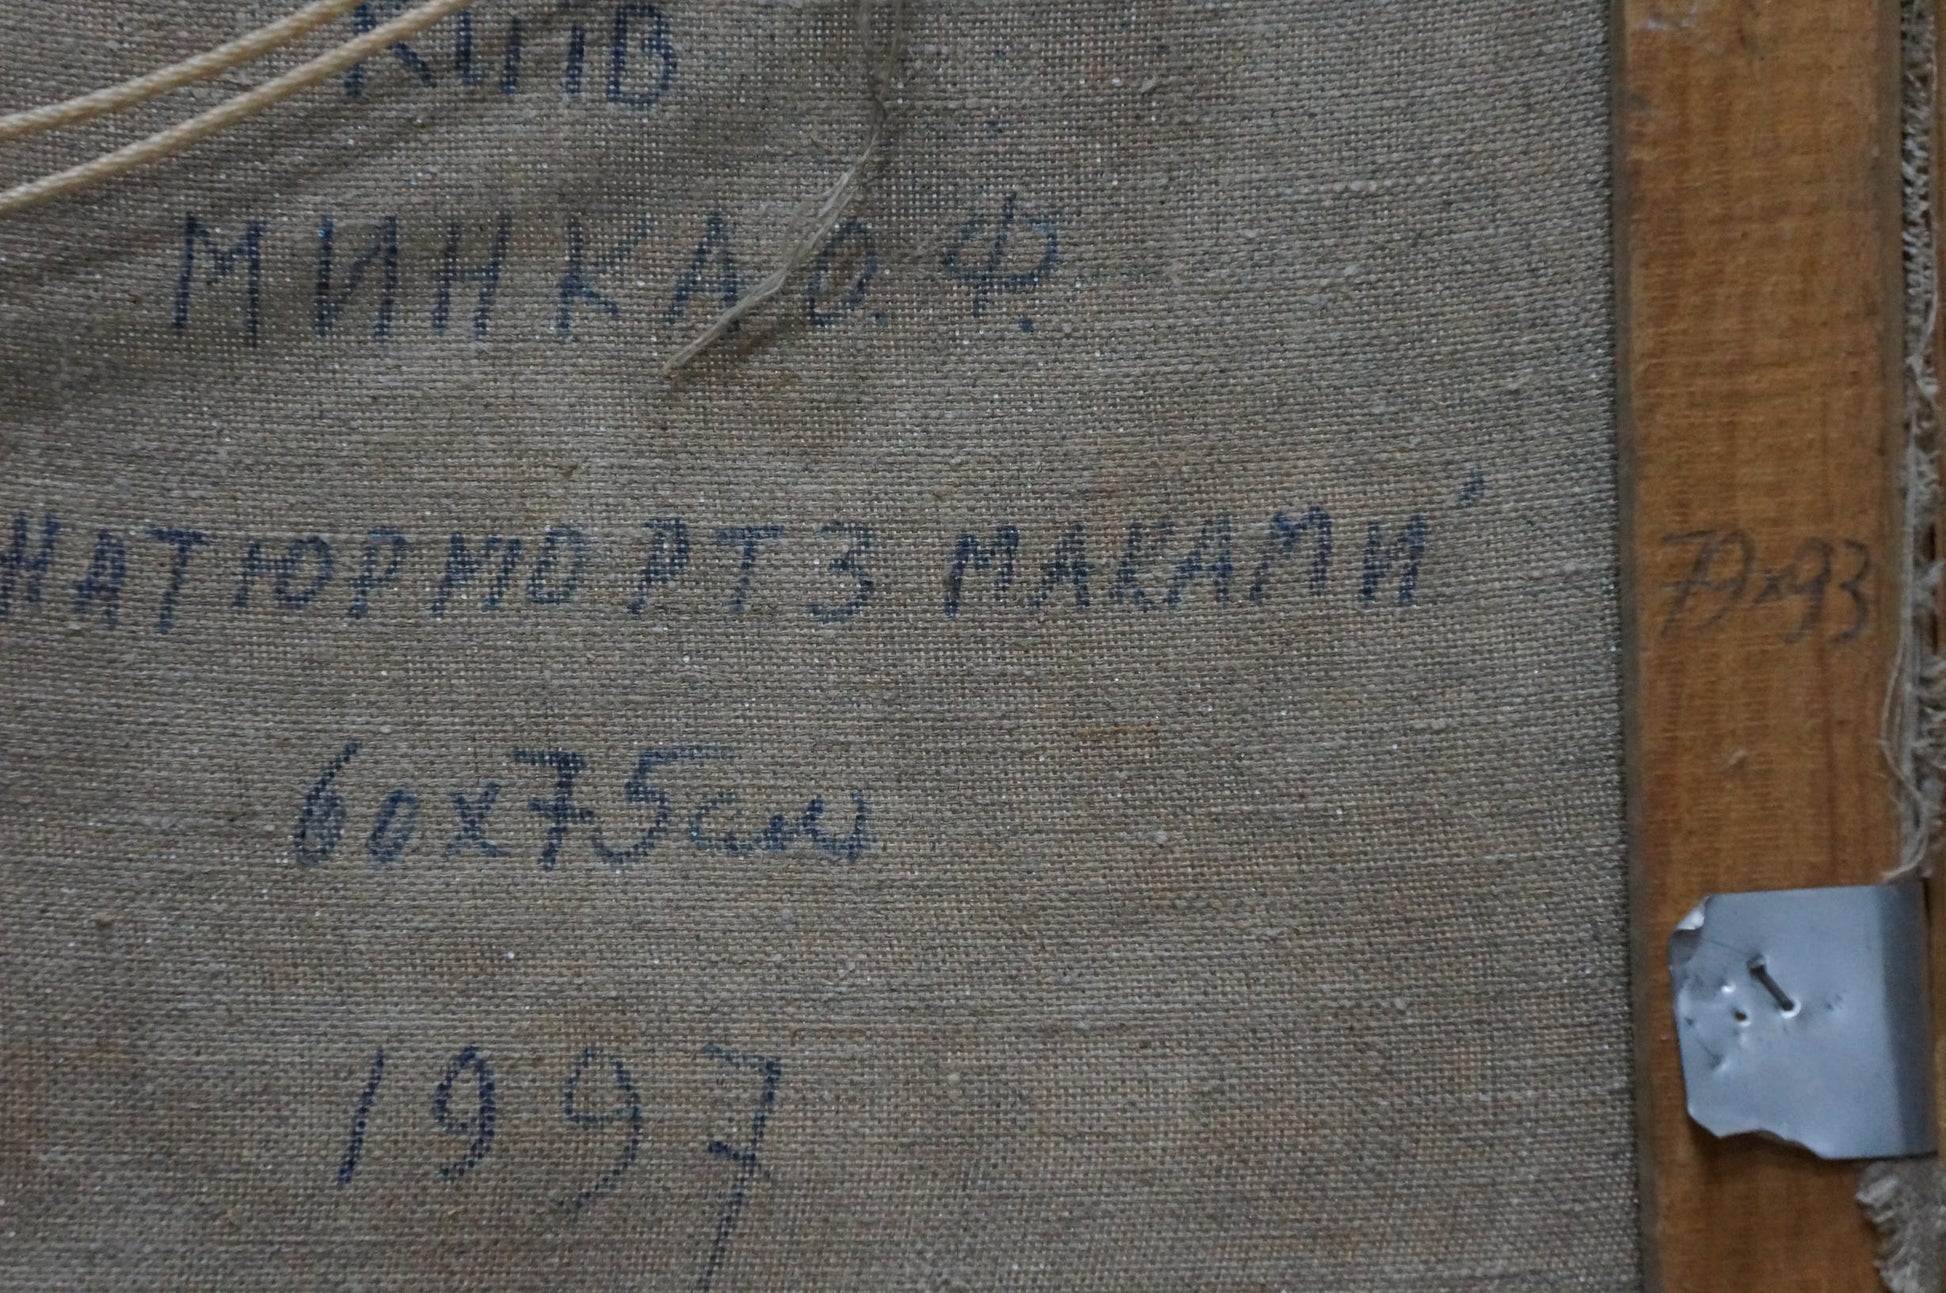 Київ
МИНКА О.Ф.
НАТЮРМОРТ З МАКАМИ"
60x75см
1997
79x93